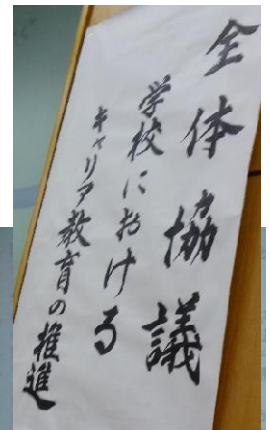 全体協議
学校における
キャリア教育の推進